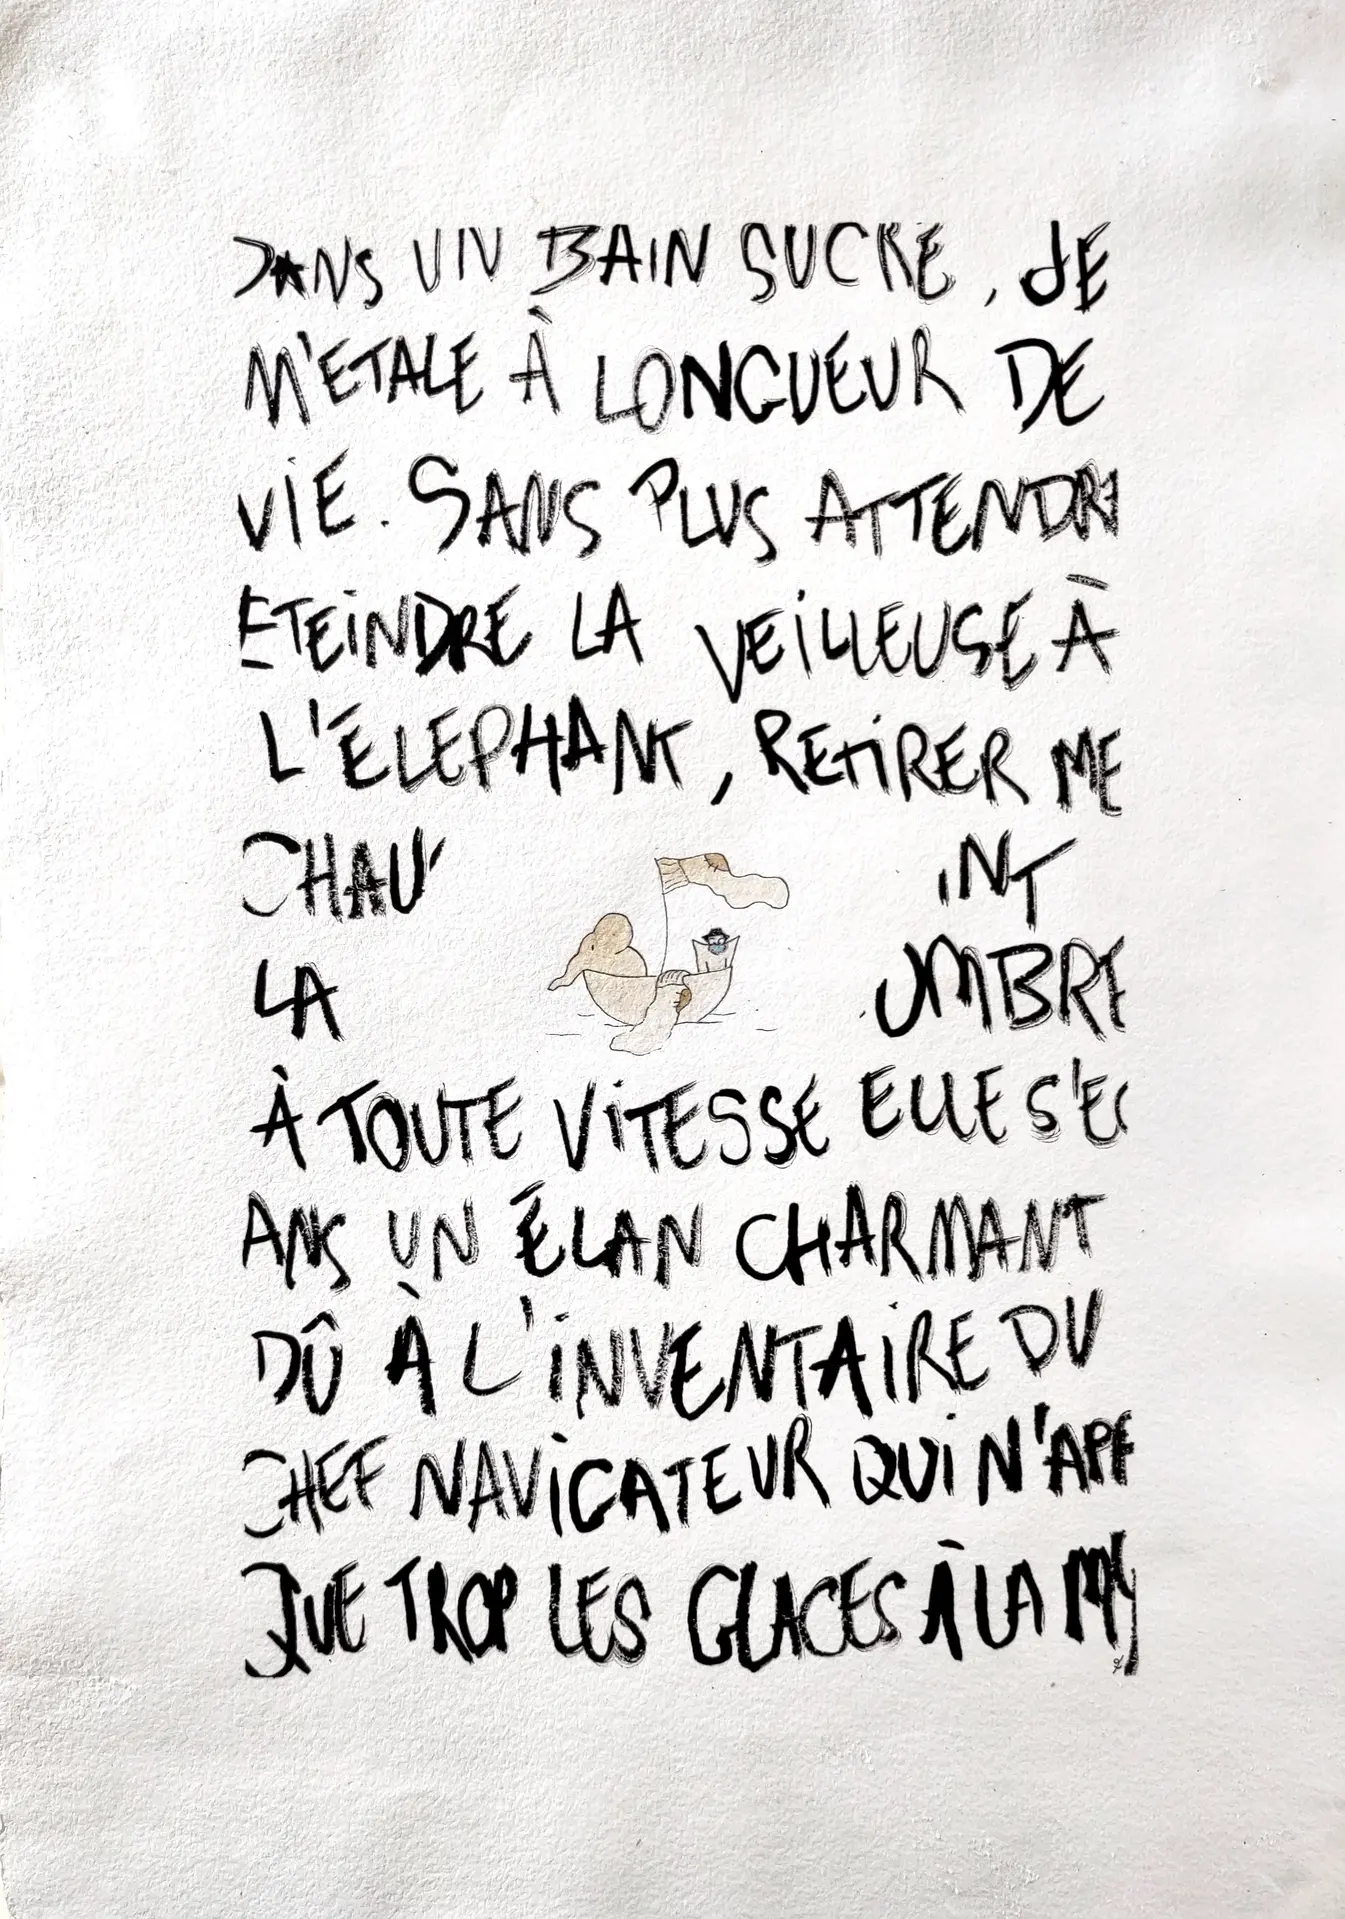 DANS UN BAIN SUCRE, JE
M'ETALE À LONGUEUR DE
VIE. SANS PLUS ATTENDRE
ETEINDRE LA VEILLEUSE À
L'ÉLEPHANT, RETIRER ME
CHAU INT
LA OMBRE
À TOUTE VITESSE ELLE S'EC
ANS UN ÉLAN CHARMANT
DÛ À L'INVENTAIRE DU
CHEF NAVIGATEUR QUI N'APP
QUE TROP LES GLACES À LA MY